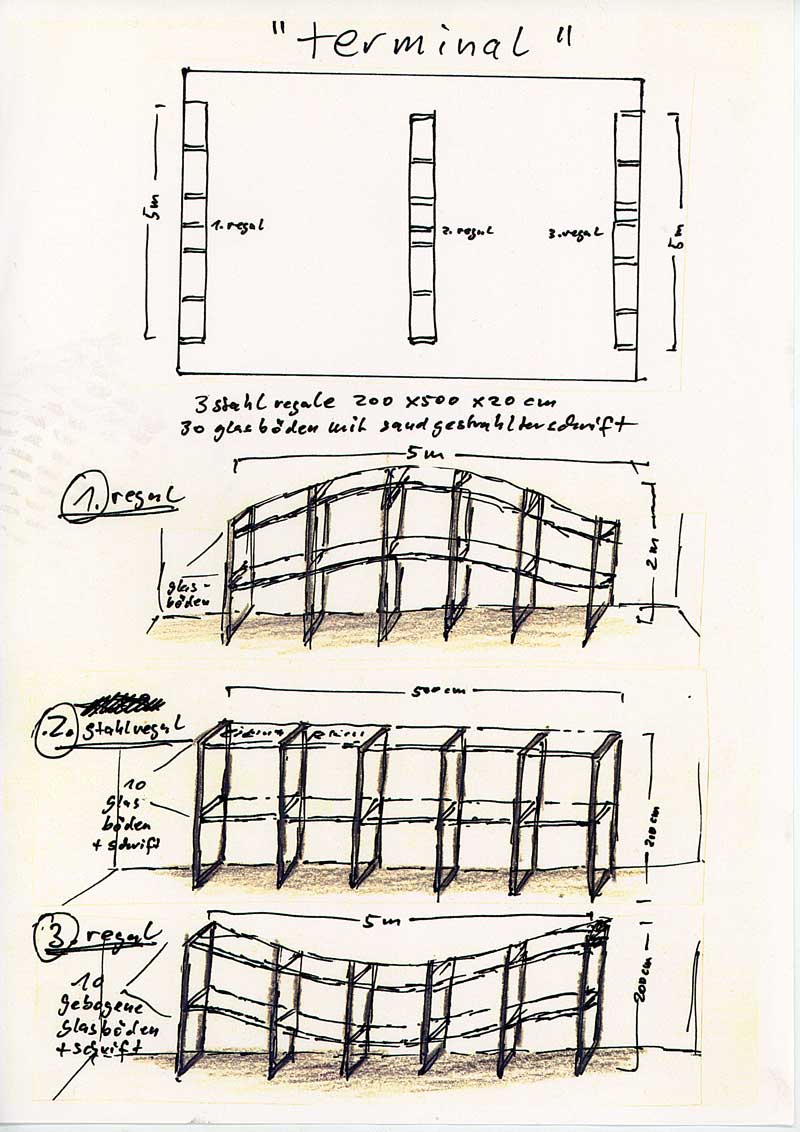 "terminal"
5m
1. regal
2. regal
3. regal
5m
3 stahlregale 200 x 500 x 20 cm
30 glasböden mit sandgestrahlter schrift
5m
1. regal
2m
glas-
böden
500 cm
2. stahlregal
10
glas
böden
+ schrift
200 cm
5m
3. regal
10
gebogene
glasböden
+ schrift
200 cm